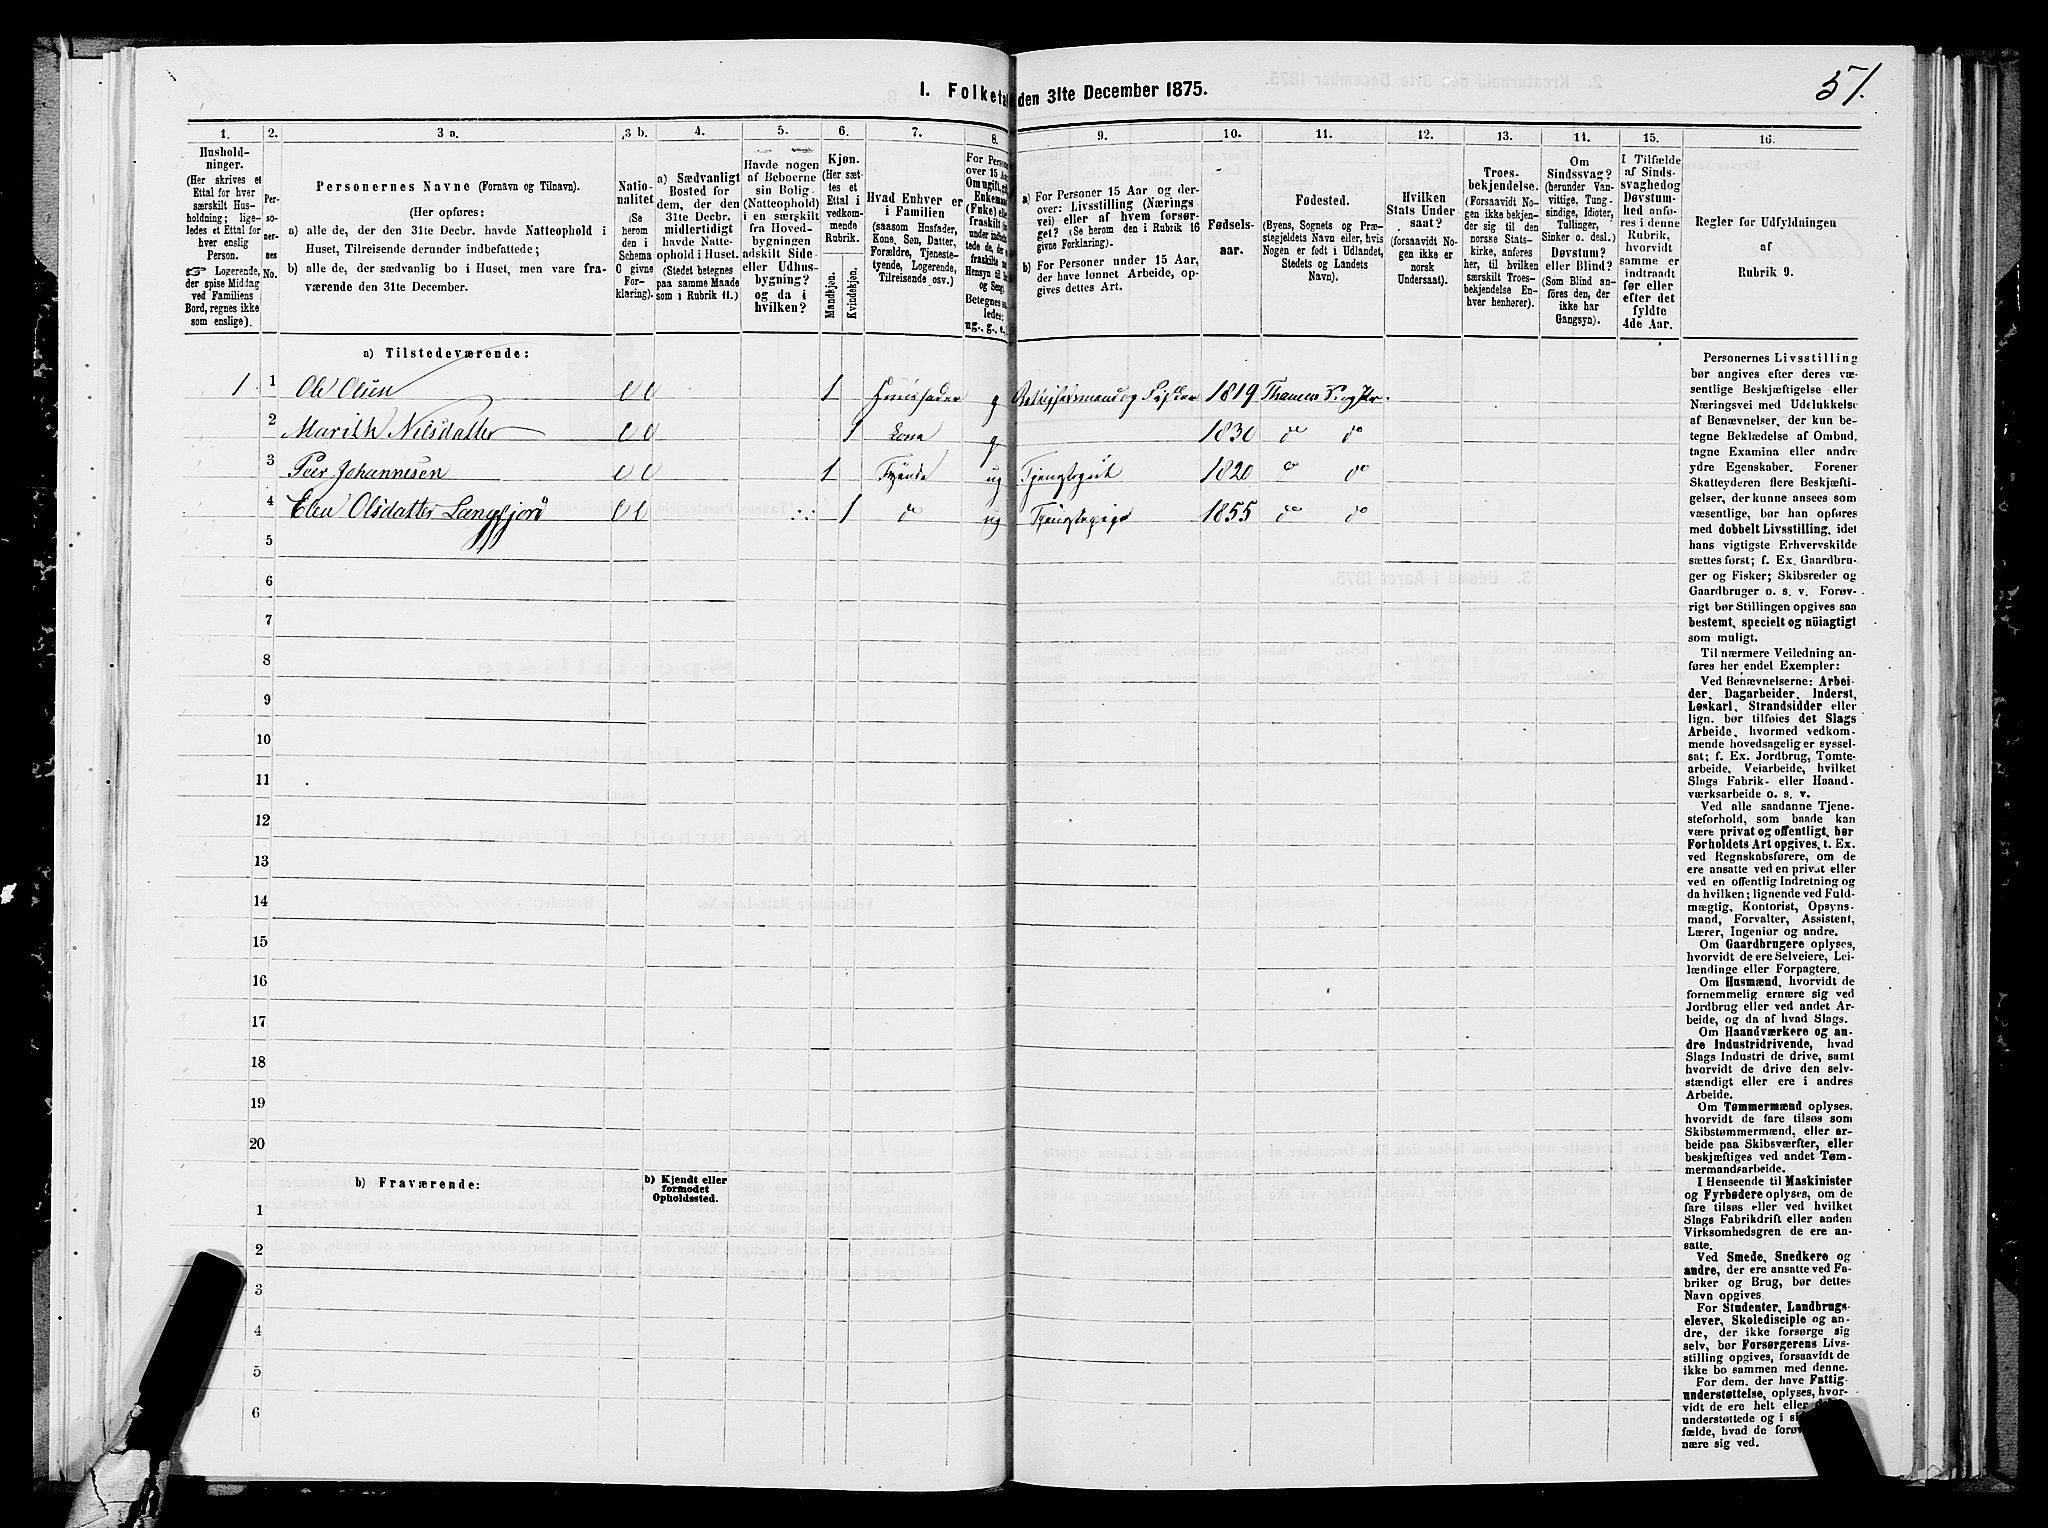 I. Folketa den 31te December 1875.
51.
1. 2. 3 a. 3 b. 4. 5. 6. 7. 8. 9. 10. 11. 12. 13. 14. 15. 16.
Hushold-
ninger.
(Her skrives et
Ettal for hver
særskilt Hus-
holdning; lige-
ledes et Ettal for
hver enslig
Person.
☞ Logerende,
der spise Middag
ved Familiens
Bord, regnes ikke
som enslige).
Per-
so-
ner-
nes
No.
Personernes Navne (Fornavn og Tilnavn).
(Her opføres:
a) alle de, der den 31te Decbr. havde Natteophold i
Huset, Tilreisende derunder indbefattede;
b) alle de, der sædvanlig bo i Huset, men vare fra-
værende den 31te December.
Natio-
nalitet
(Se
herom
den i
Schema
C givne
For-
klaring).
a) Sædvanligt
Bosted for
dem, der den
31te Decbr.
midlertidigt
havde Natte-
ophold i Huset.
(Stedet betegnes
paa samme Maade
som i Rubrik 11.)
Havde nogen
af Beboerne
sin Bolig
(Natteophold)
i en særskilt
fra Hoved-
bygningen
adskilt Side-
eller Udhus-
bygning?
og da i
hvilken?
Kjøn.
(Her sæt-
tes et
Ettal i
vedkom-
mende
Rubrik.
Mandkjøn.
Kvindekjøn.
Hvad Enhver er
i Familien
(saasom Husfader,
Kone, Søn, Datter,
Forældre, Tjeneste-
tyende, Logerende,
Tilreisende osv.)
For Persone
over 15 Aar
Om ugift, gi
Enkemand
(Enke) elle
fraskilt
under indbe
tede de, de
fraskilte
Hensyn til Bo
og Seng.
Betegnes saa
ledes:
ug., g., e.,
a) For Personer 15 Aar og der-
over: Livsstilling (Nærings
vei) eller af hvem forsør-
get? (Se herom de i Rubrik 16
givne Forklaring).
b) For Personer under 15 Aar,
der have lønnet Arbeide, op-
gives dettes Art.
Fødsels-
aar.
Fødested.
(Byens, Sognets og Præ-
stegjeldets Navn eller, hvis
Nogen er født i Udlandet,
Stedets og Landets
Navn).
Hvilken
Stats Under
saat?
(forsaavidt No-
gen ikke er
norsk
Undersaat).
Troes-
bekjendelse.
(Forsaavidt No-
gen ikke bekjen-
der sig til den
norske Stats-
kirke, anføres
her, til hvilken
særskilt Troes-
bekjendelse En-
hver henhører).
Om
Sindssvag?
(herunder Van-
vittige, Tung-
sindige, Idioter,
Tullinger,
Sinker o. desl.)
Døvstum?
eller Blind?
(Som Blind an-
føres den, der
ikke har
Gangsyn).
I Tilfælde
af Sinds-
svaghedog
Døvstum-
hed anfø-
res i denne
Rubrik,
hvorvidt
samme er
indtraadt
før eller
efter det
fyldte
4de Aar.
Regler for Udfyldningen
af
Rubrik 9.
a) Tilstedeværende:
1 1 Ole Olsen 1 Huusfader g og Fisker 1819
2 Marith Nilsdatter 1 Kone g 1830 do do
3 Peer Johannesen 1 Tyende ug 1820 do do
4 Elen Olsdatter Langfjord 1 do ug Tjenestepige 1855 do do
5
6
7
8
9
10
11
12
13
14
15
16
17
18
19
20
b) Fraværende:
b) Kjendt eller
formodet
Opholdssted.
1
2
3
4
5
6
Personernes Livsstilling
bør angives efter deres væ-
sentlige Beskjæftigelse eller
Næringsvei med Udelukkelse
af Benævnelser, der kun be-
tegne Beklædelse af Ombud,
tagne Examina eller andre
ydre Egenskaber. Forener
Skatteyderen flere Beskjæfti-
gelser, der kunne ansees som
væsentlige, bør han opføres
med dobbelt Livsstilling, idet
hans vigtigste Erhvervskilde
sættes først; f. Ex. Gaardbru-
ger og Fisker; Skibsreder og
Gaardbruger o. s. v. Forøv-
rigt bør Stillingen opgives saa
bestemt, specielt og nöiagtigt
som muligt.
Til nærmere Veiledning an-
føres her endel Exempler:
Ved Benævnelserne: Arbei-
der, Dagarbeider, Inderst,
Løskarl, Strandsidder eller
lign. bør tilføies det Slags
Arbeide, hvormed vedkom-
mende hovedsagelig er syssel-
sat; f. Ex. Jordbrug, Tomte-
arbeide, Veiarbeide, hvilket
Slags Fabrik- eller Haand-
værksarbeide o. s. v.
Ved alle saadanne Tjene-
steforhold, som baade kan
være privat og offentligt, bør
Forholdets Art opgives, t. Ex.
ved Regnskabsførere, om de
ere ansatte ved en privat eller
ved en offentlig Indretning og
da hvilken; lignende ved Fuld-
mægtig, Kontorist, Opsyns-
mand, Forvalter, Assistent,
Lærer, Ingeniør og andre.
Om Gaardbrugere oplyses,
hvorvidt de ere Selveiere, Lei-
lændinge eller Forpagtere.
Om Husmænd, hvorvidt de
fornemmelig ernære sig ved
Jordbrug eller ved andet Ar-
beide, og da af hvad Slags.
Om Haandværkere og an-
dre Industridrivende, hvad
Slags Industri de drive, samt
hvorvidt de drive den selv-
stændigt eller ere i andres
Arbeide.
Om Tømmermænd oplyses,
hvorvidt de fare tilsøs som
Skibstømmermænd, eller ar-
beide paa Skibsværfter, eller
beskjæftiges ved andet Tøm-
mermandsarbeide.
I Henseende til Maskinister
og Fyrbødere oplyses, om de
fare tilsøs eller ved hvilket
Slags Fabrikdrift eller anden
Virksomhedsgren de ere an-
satte.
Ved Smede, Snedkere og
andre, der ere ansatte ved Fa-
briker og Brug, bør dettes
Navn opgives.
For Studenter, Landbrugs-
elever, Skoledisciple og an-
dre, der ikke forsørge sig
selv, bør Forsørgerens Livs-
stilling opgives, forsaavidt de
ikke bo sammen med denne.
For dem, der have Fattig-
understøttelse, oplyses, hvor-
vidt de ere helt eller
understøttede og i
fælde, hvad de
nære sig ved.